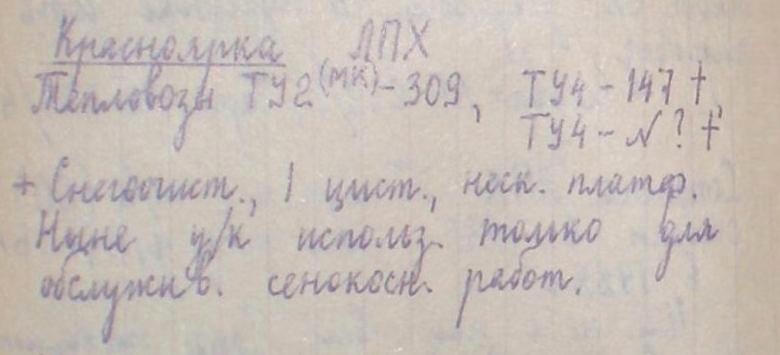 Красноярка ЛПХ
Тепловозы ТУ2(МК)-309, ТУ4-147 †,
ТУ4-N? †
+ Снегоочист., 1 цист., неск. платф.
Ныне у/к использ. только для
обслужив. сенокосн. работ.